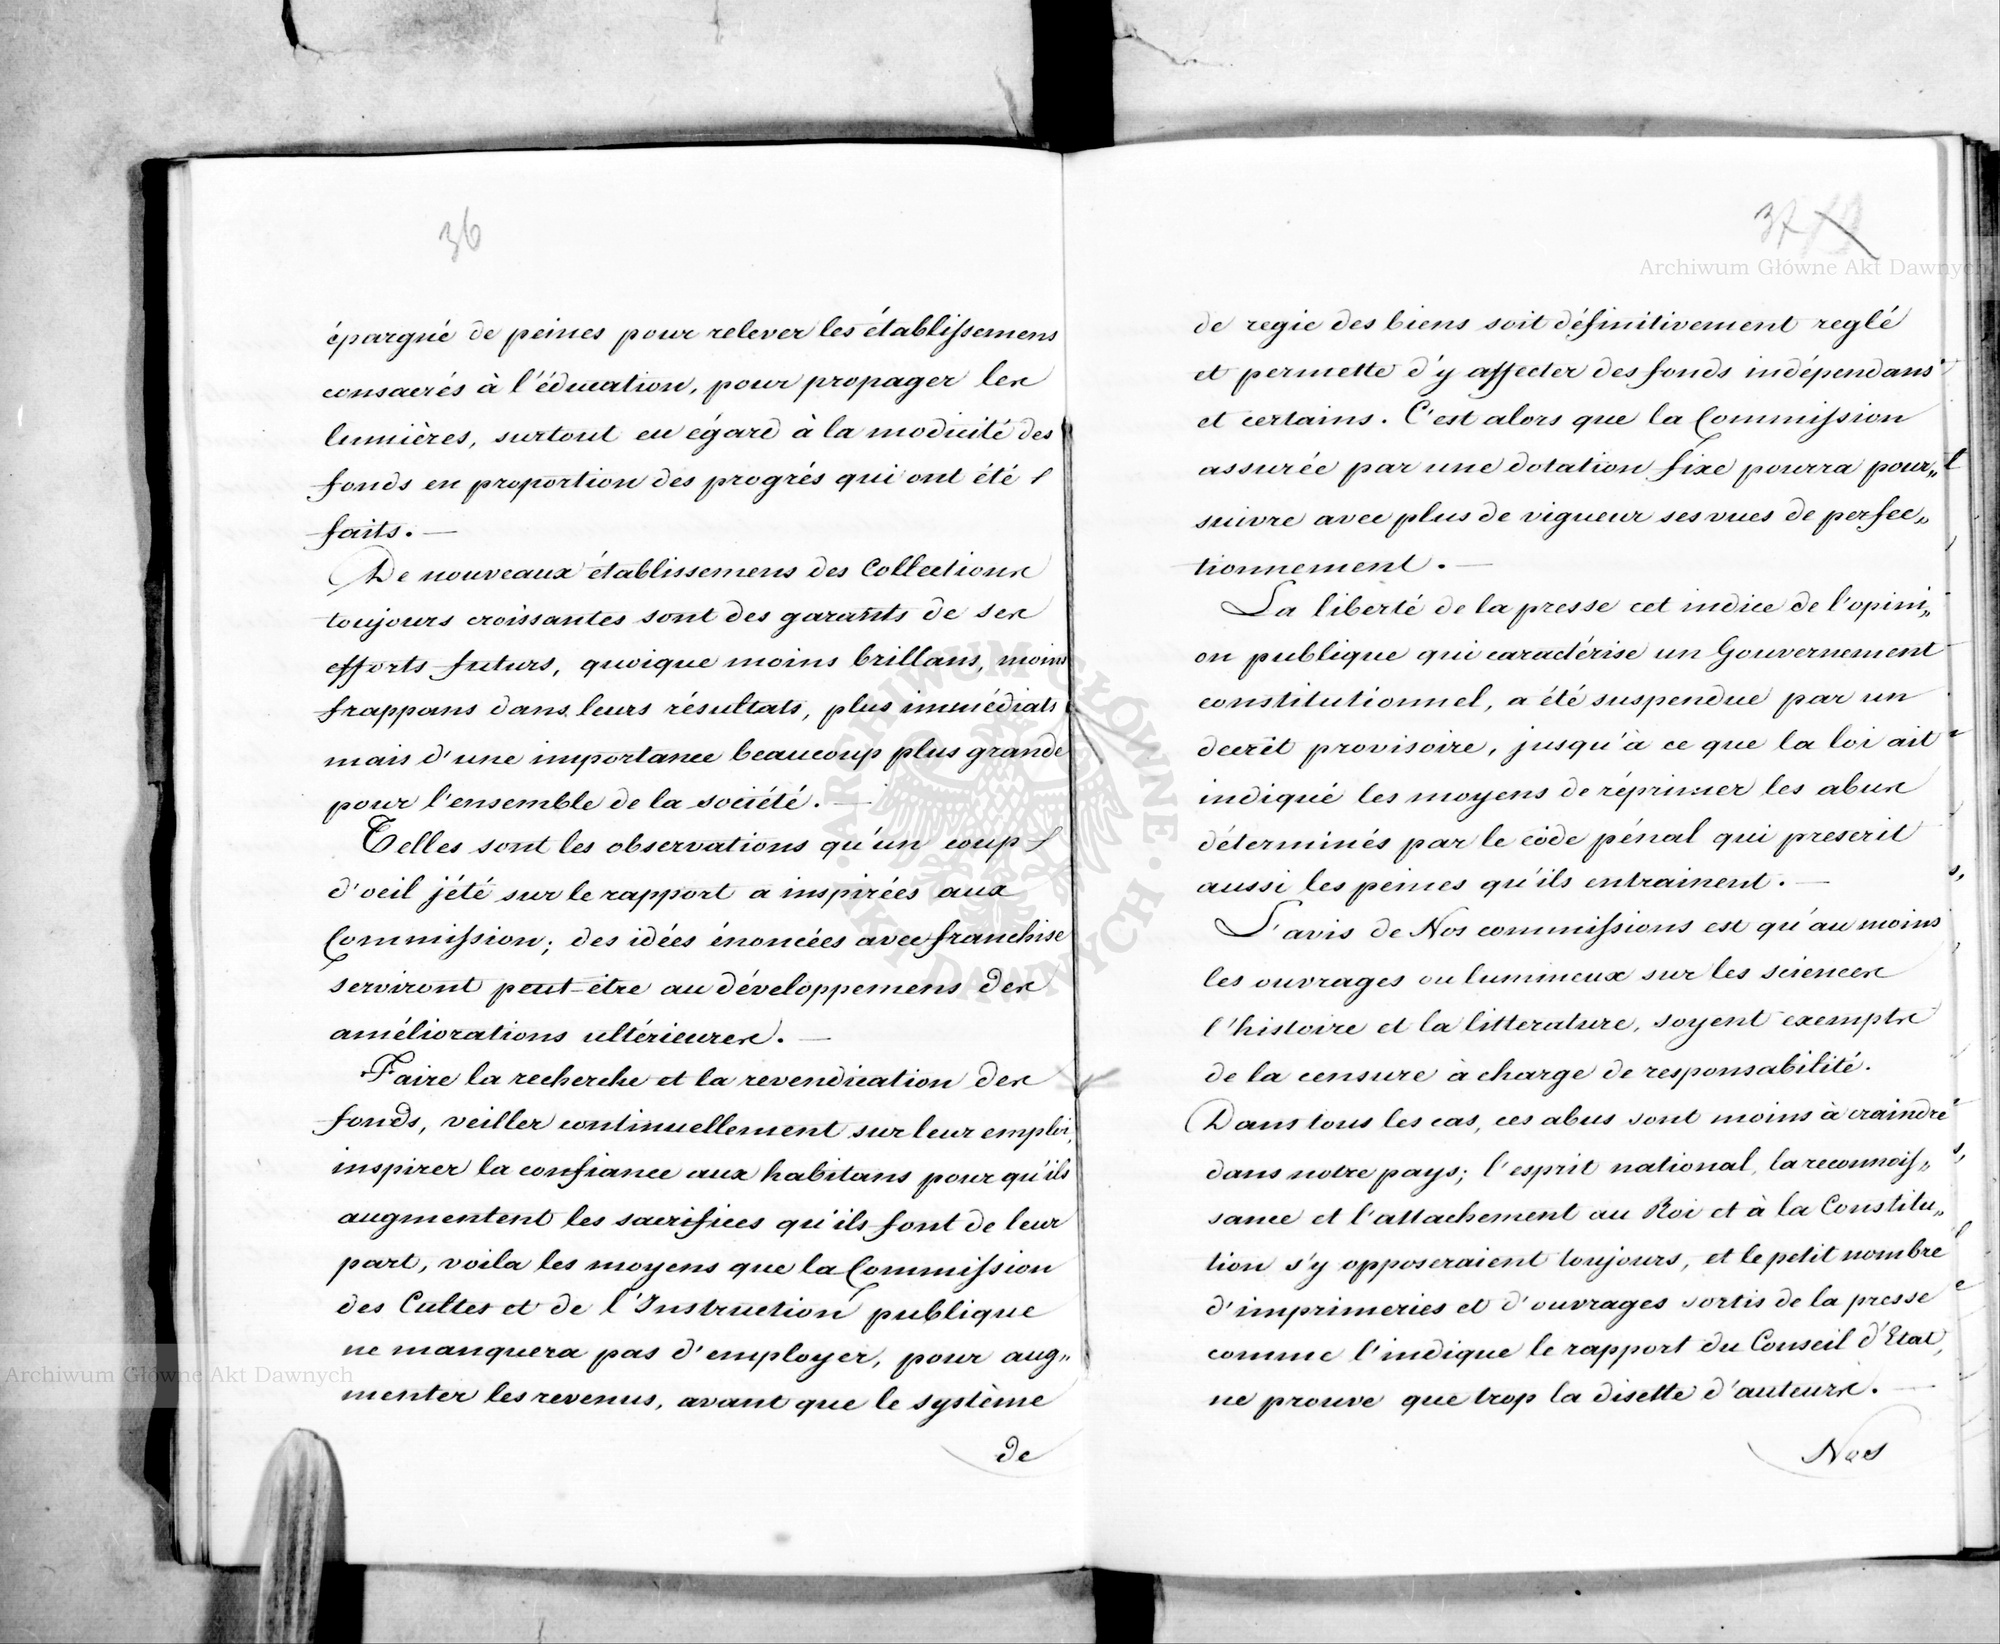 36
épargné de peines pour relever les établissemens
consacrés à l'éducation, pour propager les
lumières, surtout eu égard à la modicité des
fonds en proportion des progrés qui ont été
faits. —
De nouveaux établissemens des Collections
toujours croissantes sont des garants de ses
efforts futurs, quoique moins brillans, moins
frappans dans leurs résultats, plus immédiats
mais d'une importance beaucoup plus grande
pour l'ensemble de la société. —
Telles sont les observations qu'un coup
d'oeil jété sur le rapport a inspirées aux
Commission; des idées énoncées avec franchise
serviront peut-etre au développemens des
améliorations ultérieures. —
Faire la recherche et la revendication des
fonds, veiller continuellement sur leur emploi,
inspirer la confiance aux habitans pour qu'ils
augmentent les sacrifices qu'ils font de leur
part, voila les moyens que la Commission
des Cultes et de l'Instruction publique
ne manquera pas d'employer, pour aug„
menter les revenus, avant que le système
de
37
de regie des biens soit définitivement reglé
et permette d'y affecter des fonds indépendans
et certains. C'est alors que la Commission
assurée par une dotation fixe pourra pour„
suivre avec plus de vigueur ses vues de perfec„
tionnement. —
La liberté de la presse cet indice de l'opini„
on publique qui caractérise un Gouvernement
constitutionnel, a été suspendue par un
decrêt provisoire, jusqu'à ce que la loi ait
indiqué les moyens de réprimer les abus
déterminés par le code pénal qui prescrit
aussi les peines qu'ils entrainent. —
L'avis de Nos commissions est qu'au moins
les ouvrages ou lumineux sur les sciences
l'histoire et la litterature, soyent exempts
de la censure à charge de responsabilité.
Dans tous les cas, ces abus sont moins à craindre
dans notre pays; l'esprit national, la reconnois„
sance et l'attachement au Roi et à la Constitu„
tion s'y opposeraient toujours, et le petit nombre
d'imprimeries et d'ouvrages sortis de la presse
comme l'indique le rapport du Conseil d'Etat,
ne prouve que trop la disette d'auteurs. —
Nos
Archiwum Główne Akt Dawnych
Archiwum Główne Akt Dawnych
ARCHIWUM GŁÓWNE · AKT DAWNYCH ·